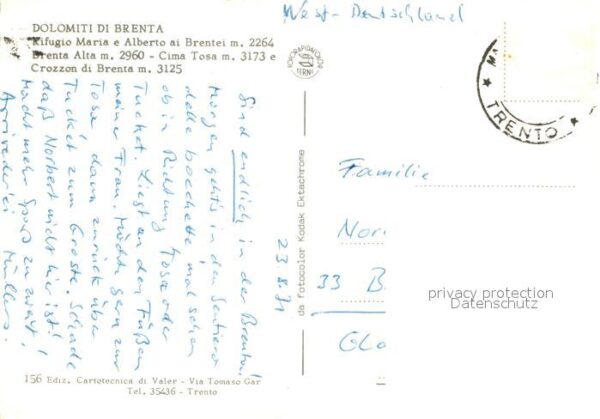 West-Deutschland
DOLOMITI DI BRENTA
Rifugio Maria e Alberto ai Brentei m. 2264
Brenta Alta m. 2960 - Cima Tosa m. 3173 e
Crozzon di Brenta m. 3125
TRENTO
23.8.71
Sind endlich in der Brenta!
Morgen gehts in den Sentiero
delle bocchette mal sehen
ob in Richtung Tosa oder
Tucket. Liegt an den Füßen
meiner Frau. Möchte gern zur
Tosa, dann zurück über
Tucket zum Groste. Schade
daß Norbert nicht hier ist!
Macht mehr Spass zu zweit!
Arrivederci Müllers.
da fotocolor Kodak Ektachrome
Familie
Nor
33 B
Glo
privacy protection
Datenschutz
156 Ediz. Cartotecnica di Valer - Via Tomaso Gar
Tel. 35436 - Trento